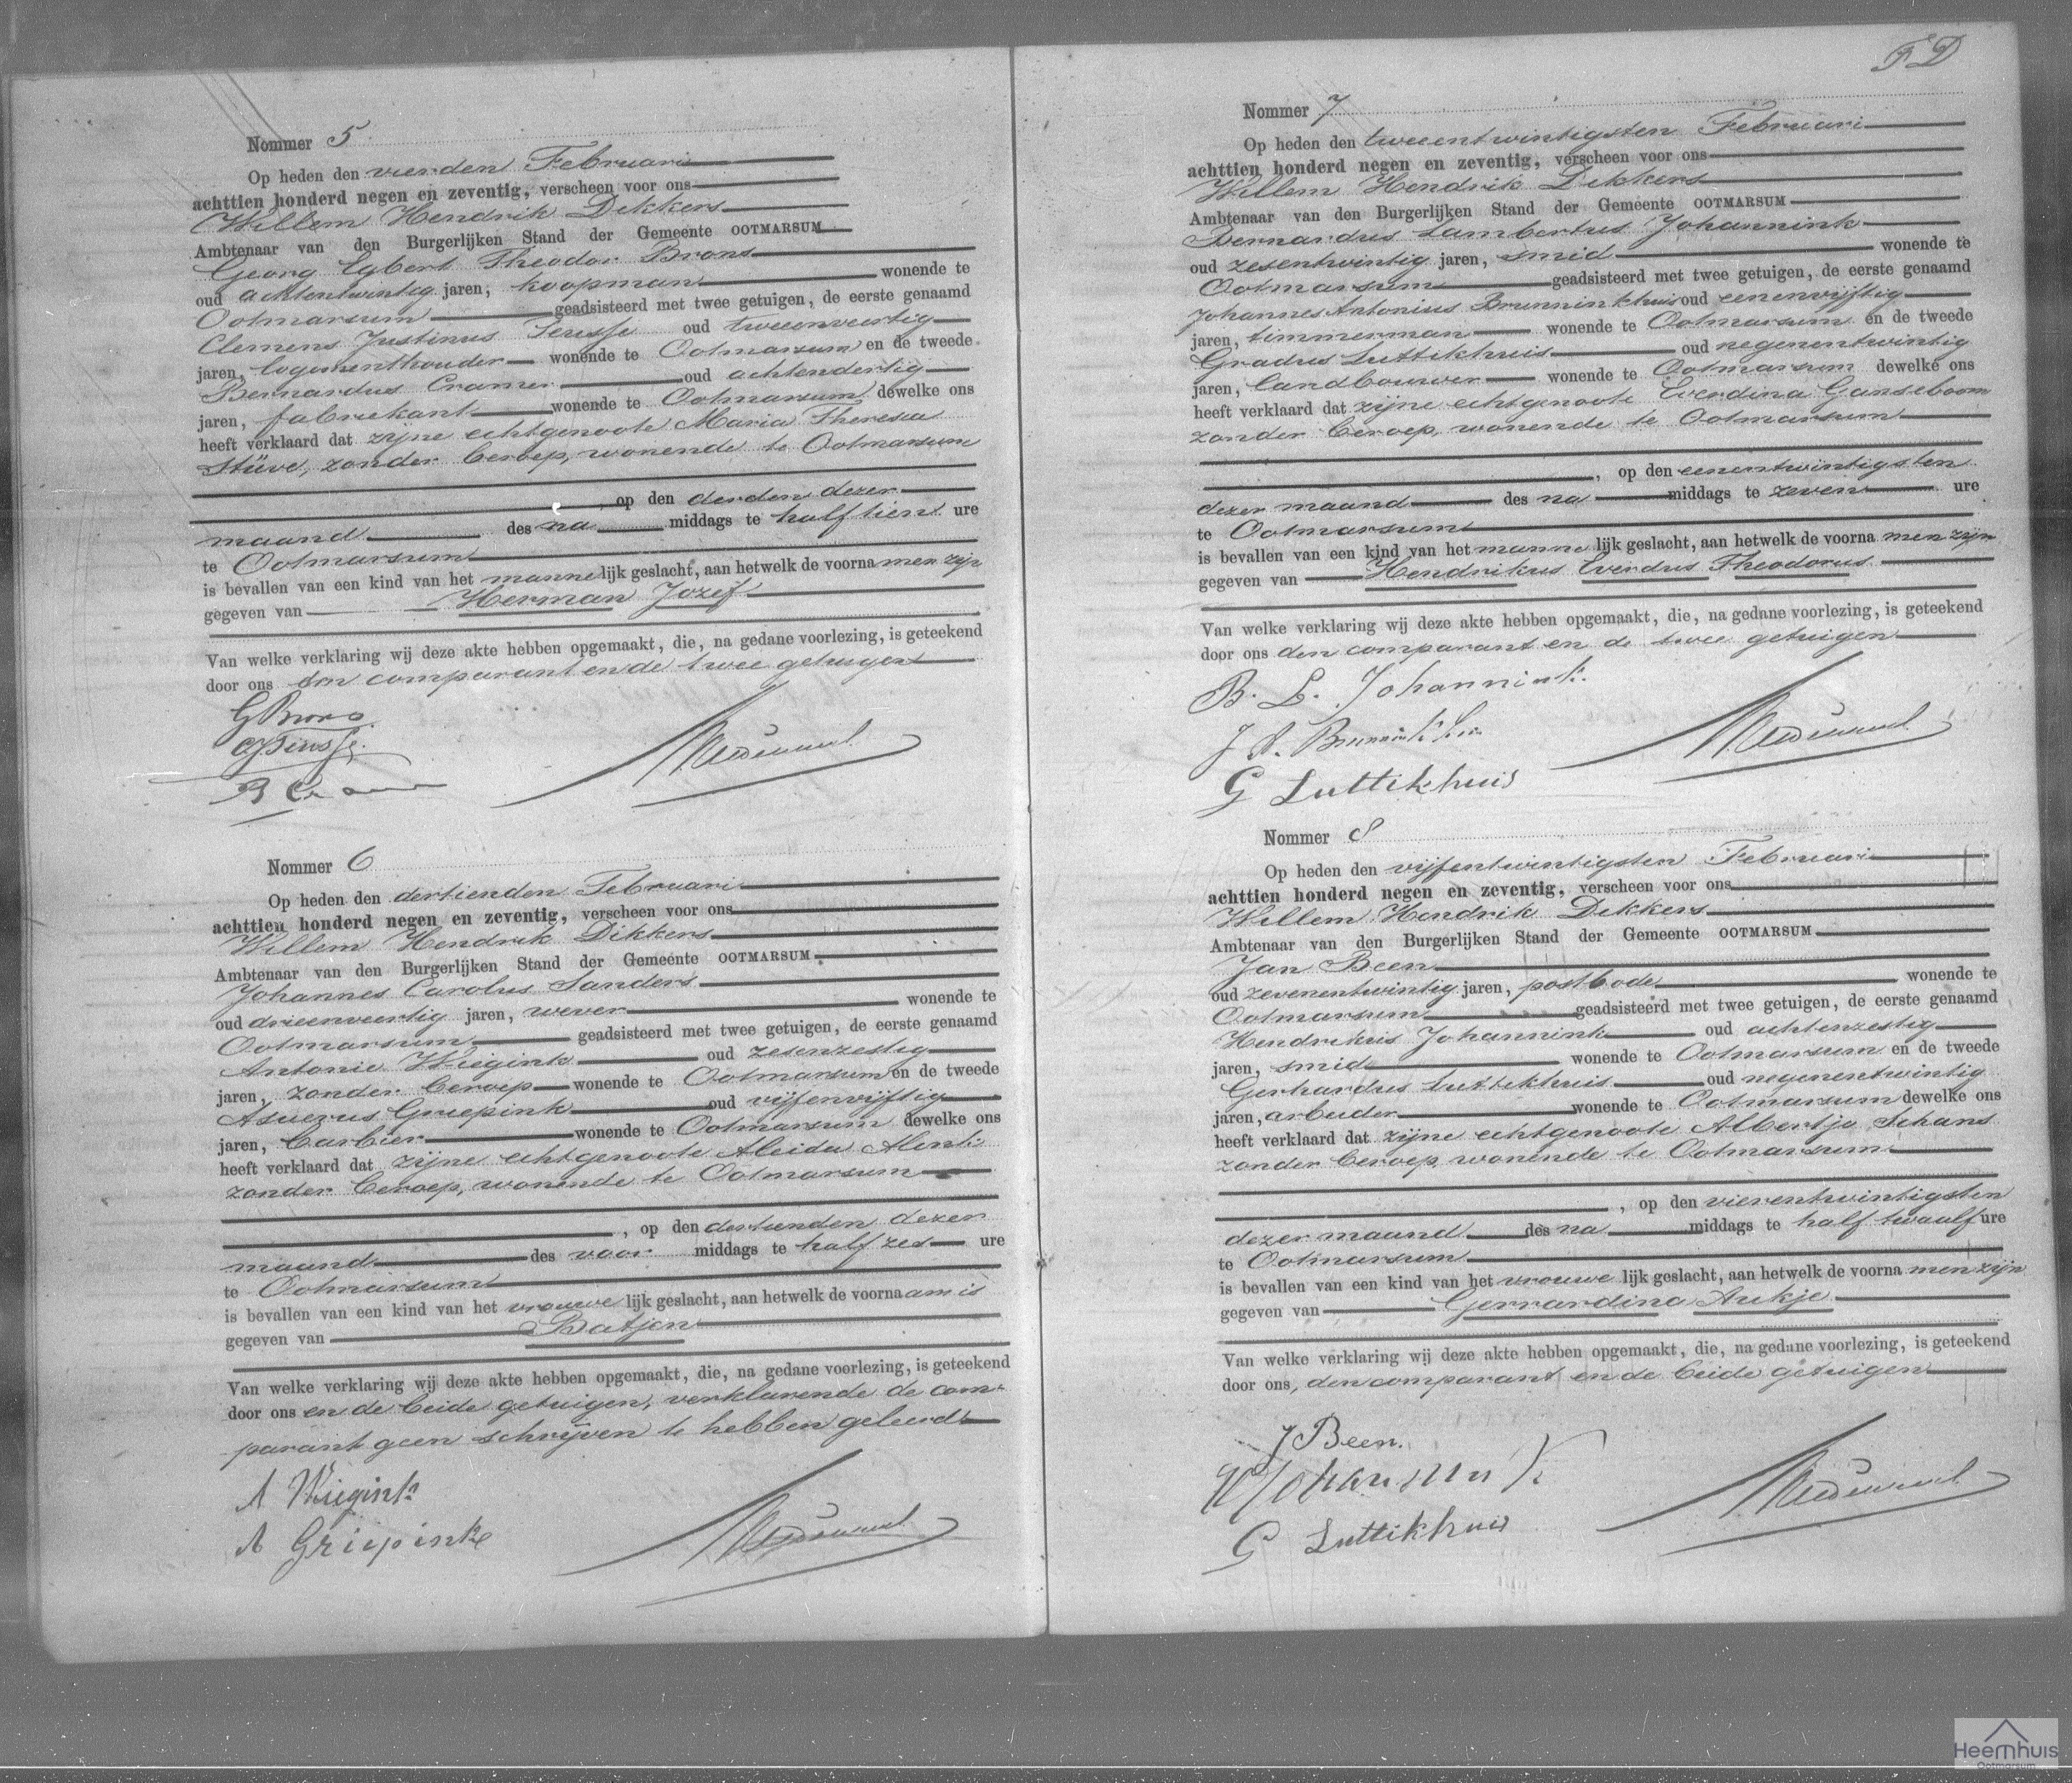 Nommer 5
Op heden den vierden Februari
achttien honderd negen en zeventig, verscheen voor ons
Willem Hendrik Dikkers
Ambtenaar van den Burgerlijken Stand der Gemeente OOTMARSUM
Georg Egbert Theodor Brons
oud achtentwintig jaren, koopman wonende te
Ootmarsum geadsisteerd met twee getuigen, de eerste genaamd
Clemens Justinus oud tweeenveertig
jaren, logementhouder wonende te Ootmarsum en de tweede
Bernardus Cramer oud achtendertig
jaren, fabriekant wonende te Ootmarsum dewelke ons
heeft verklaard dat zijne echtgenoote Maria Theresa
Stüve, zonder beroep, wonende te Ootmarsum
op den derden dezer
maand des na middags te half tien ure
te Ootmarsum
is bevallen van een kind van het mannelijk geslacht, aan hetwelk de voornamen zijn
gegeven van Herman Jozef
Van welke verklaring wij deze akte hebben opgemaakt, die, na gedane voorlezing, is geteekend
door ons den comparant en de twee getuigen
G Brons
B Cramer
Nommer 6
Op heden den dertienden Februari
achttien honderd negen en zeventig, verscheen voor ons
Willem Hendrik Dikkers
Ambtenaar van den Burgerlijken Stand der Gemeente OOTMARSUM
Johannes Carolus Sanders
oud drieenveertig jaren, wever wonende te
Ootmarsum geadsisteerd met twee getuigen, de eerste genaamd
Antonie Wiegink oud zesenzestig
jaren, zonder beroep wonende te Ootmarsum en de tweede
Asuerus Griepink oud vijfenvijftig
jaren, barbier wonende te Ootmarsum dewelke ons
heeft verklaard dat zijne echtgenoote Aleida Alink
zonder beroep, wonende te Ootmarsum
, op den dertienden dezer
maand des voor middags te half zes ure
te Ootmarsum
is bevallen van een kind van het vrouwelijk geslacht, aan hetwelk de voornaam is
gegeven van Batjen
Van welke verklaring wij deze akte hebben opgemaakt, die, na gedane voorlezing, is geteekend
door ons en de beide getuigen, verklarende de com-
parant geen schrijven te hebben geleerd
A Wiegink
A Griepink
Nommer 7
Op heden den tweeentwintigsten Februari
achttien honderd negen en zeventig, verscheen voor ons
Willem Hendrik Dikkers
Ambtenaar van den Burgerlijken Stand der Gemeente OOTMARSUM
Bernardus Lambertus Johannink
oud zesentwintig jaren, smid wonende te
Ootmarsum geadsisteerd met twee getuigen, de eerste genaamd
Johannes Antonius Brunninkhuis oud eenenvijftig
jaren, timmerman wonende te Ootmarsum en de tweede
Gradus Luttikhuis oud negenentwintig
jaren, landbouwer wonende te Ootmarsum dewelke ons
heeft verklaard dat zijne echtgenoote Everdina Ganseboom
zonder beroep, wonende te Ootmarsum
, op den eenentwintigsten
dezer maand des na middags te zeven ure
te Ootmarsum
is bevallen van een kind van het mannelijk geslacht, aan hetwelk de voornamen zijn
gegeven van Hendrikus Everdus Theodorus
Van welke verklaring wij deze akte hebben opgemaakt, die, na gedane voorlezing, is geteekend
door ons den comparant en de twee getuigen
B. L. Johannink.
J A.
G Luttikhuis
Nommer 8
Op heden den vijfentwintigsten Februari
achttien honderd negen en zeventig, verscheen voor ons
Willem Hendrik Dikkers
Ambtenaar van den Burgerlijken Stand der Gemeente OOTMARSUM
Jan Been
oud zevenentwintig jaren, postbode wonende te
Ootmarsum geadsisteerd met twee getuigen, de eerste genaamd
Hendrikus Johannink oud achtenzestig
jaren, smid wonende te Ootmarsum en de tweede
Gerhardus Luttikhuis oud negenentwintig
jaren, arbeider wonende te Ootmarsum dewelke ons
heeft verklaard dat zijne echtgenoote Albertje Schans
zonder beroep, wonende te Ootmarsum
, op den vierentwintigsten
dezer maand des na middags te half twaalf ure
te Ootmarsum
is bevallen van een kind van het vrouwelijk geslacht, aan hetwelk de voornamen zijn
gegeven van Gerrardina Aukje
Van welke verklaring wij deze akte hebben opgemaakt, die, na gedane voorlezing, is geteekend
door ons, den comparant en de beide getuigen
J Been.
H Johannink
G Luttikhuis
Heemhuis
Ootmarsum